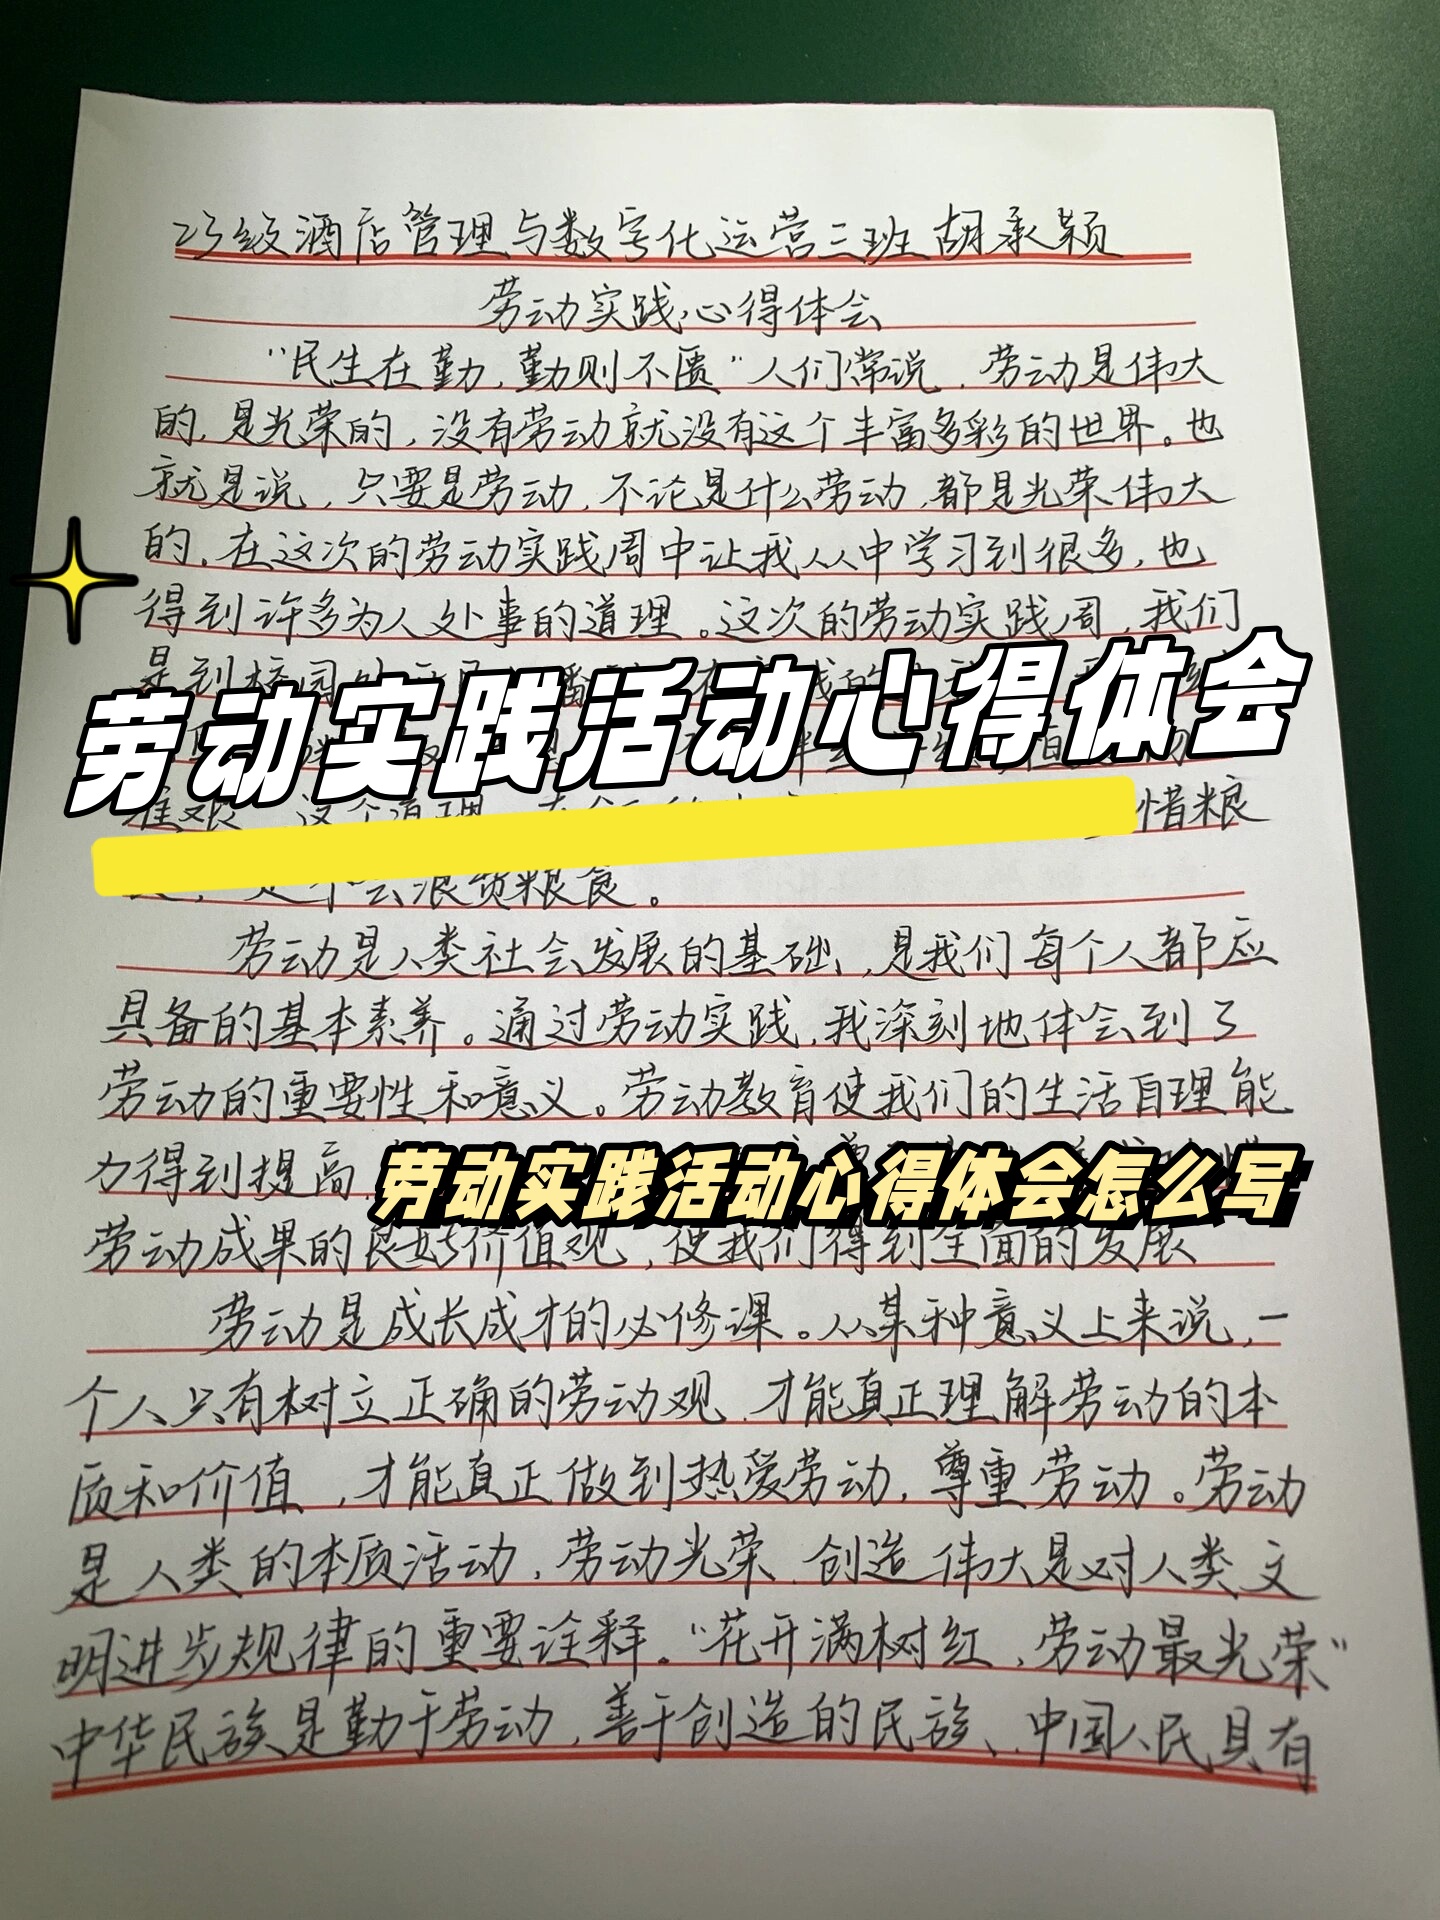 23级酒店管理与数字化运营三班胡承颖
劳动实践心得体会
"民生在勤,勤则不匮"人们常说,劳动是伟大
的,是光荣的,没有劳动就没有这个丰富多彩的世界。也
就是说,只要是劳动,不论是什么劳动,都是光荣伟大
的,在这次的劳动实践周中让我从中学习到很多,也
得到许多为人处事的道理。这次的劳动实践周,我们
是到校园
劳动实践活动心得体会
惜粮
会浪费粮食。
劳动是人类社会发展的基础,是我们每个人都应
具备的基本素养。通过劳动实践,我深刻地体会到了
劳动的重要性和意义。劳动教育使我们的生活自理能
力得到提高
劳动实践活动心得体会怎么写
劳动成果的良好价值观,使我们得到全面的发展
劳动是成长成才的必修课。从某种意义上来说,一
个人只有树立正确的劳动观,才能真正理解劳动的本
质和价值,才能真正做到热爱劳动,尊重劳动。劳动
是人类的本质活动,劳动光荣、创造伟大是对人类文
明进步规律的重要诠释。"花开满树红,劳动最光荣"
中华民族是勤于劳动,善于创造的民族、中国人民具有